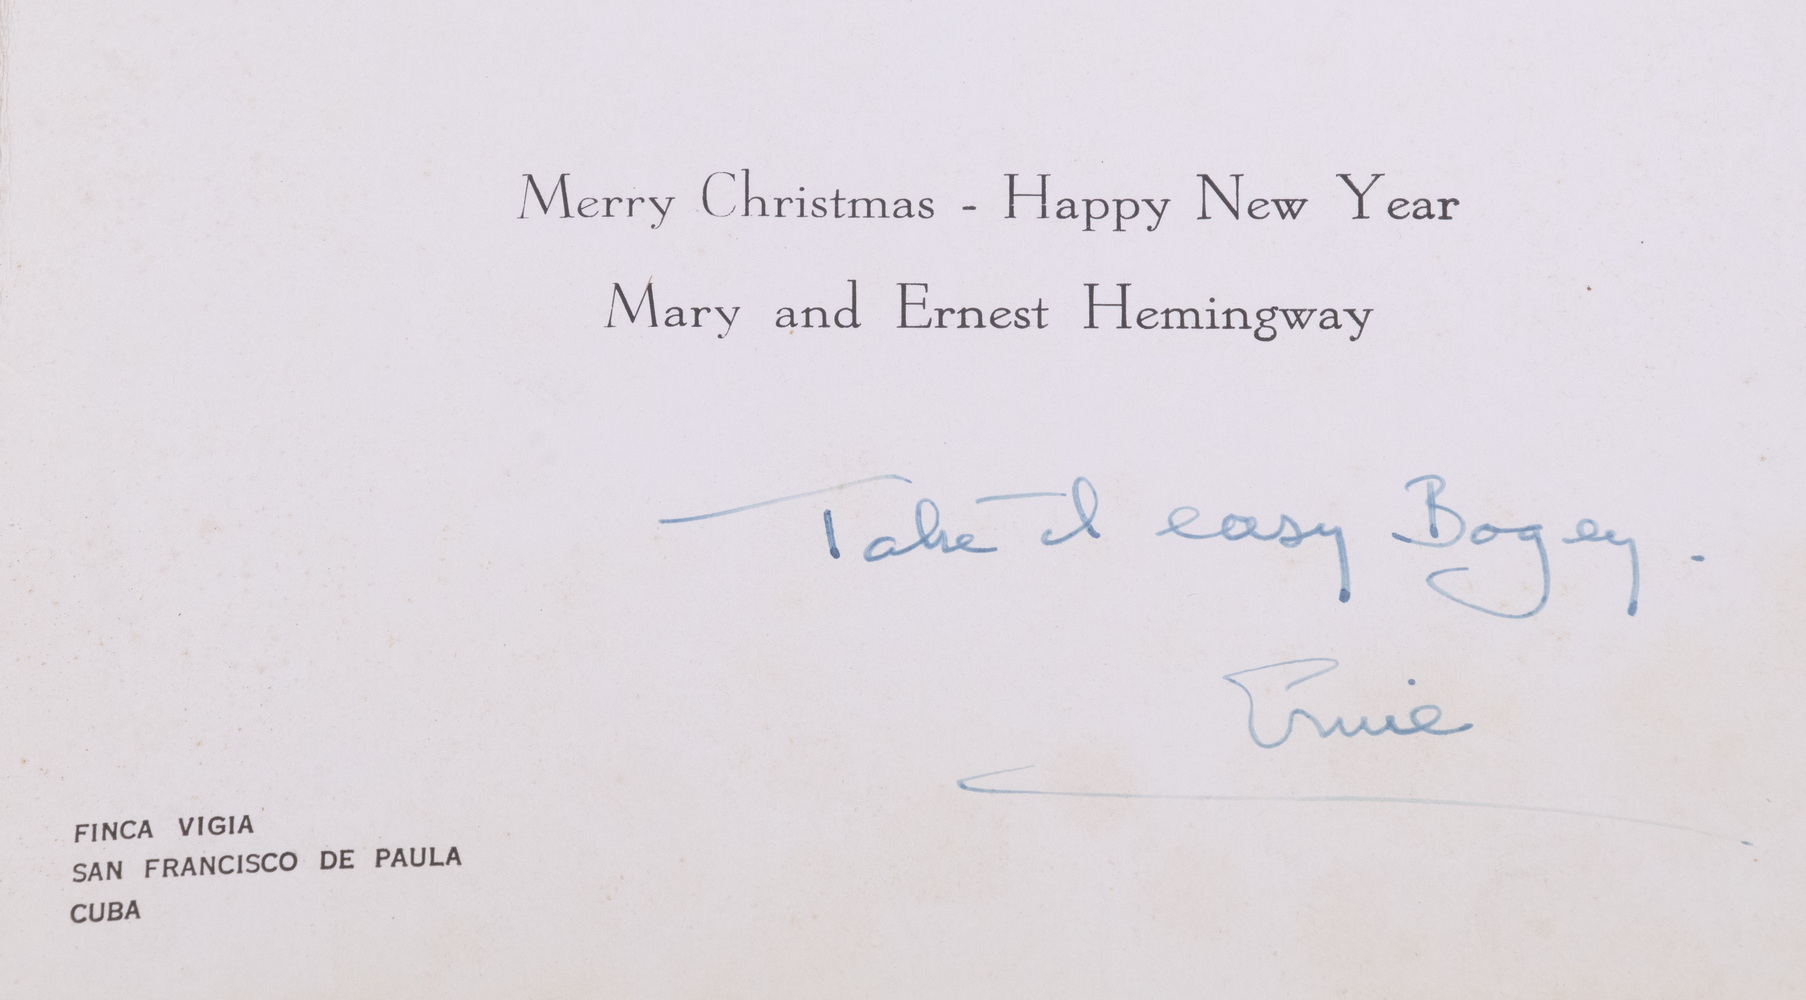 Merry Christmas - Happy New Year
Mary and Ernest Hemingway
Take it easy Bogey.
Ernie
FINCA VIGIA
SAN FRANCISCO DE PAULA
CUBA